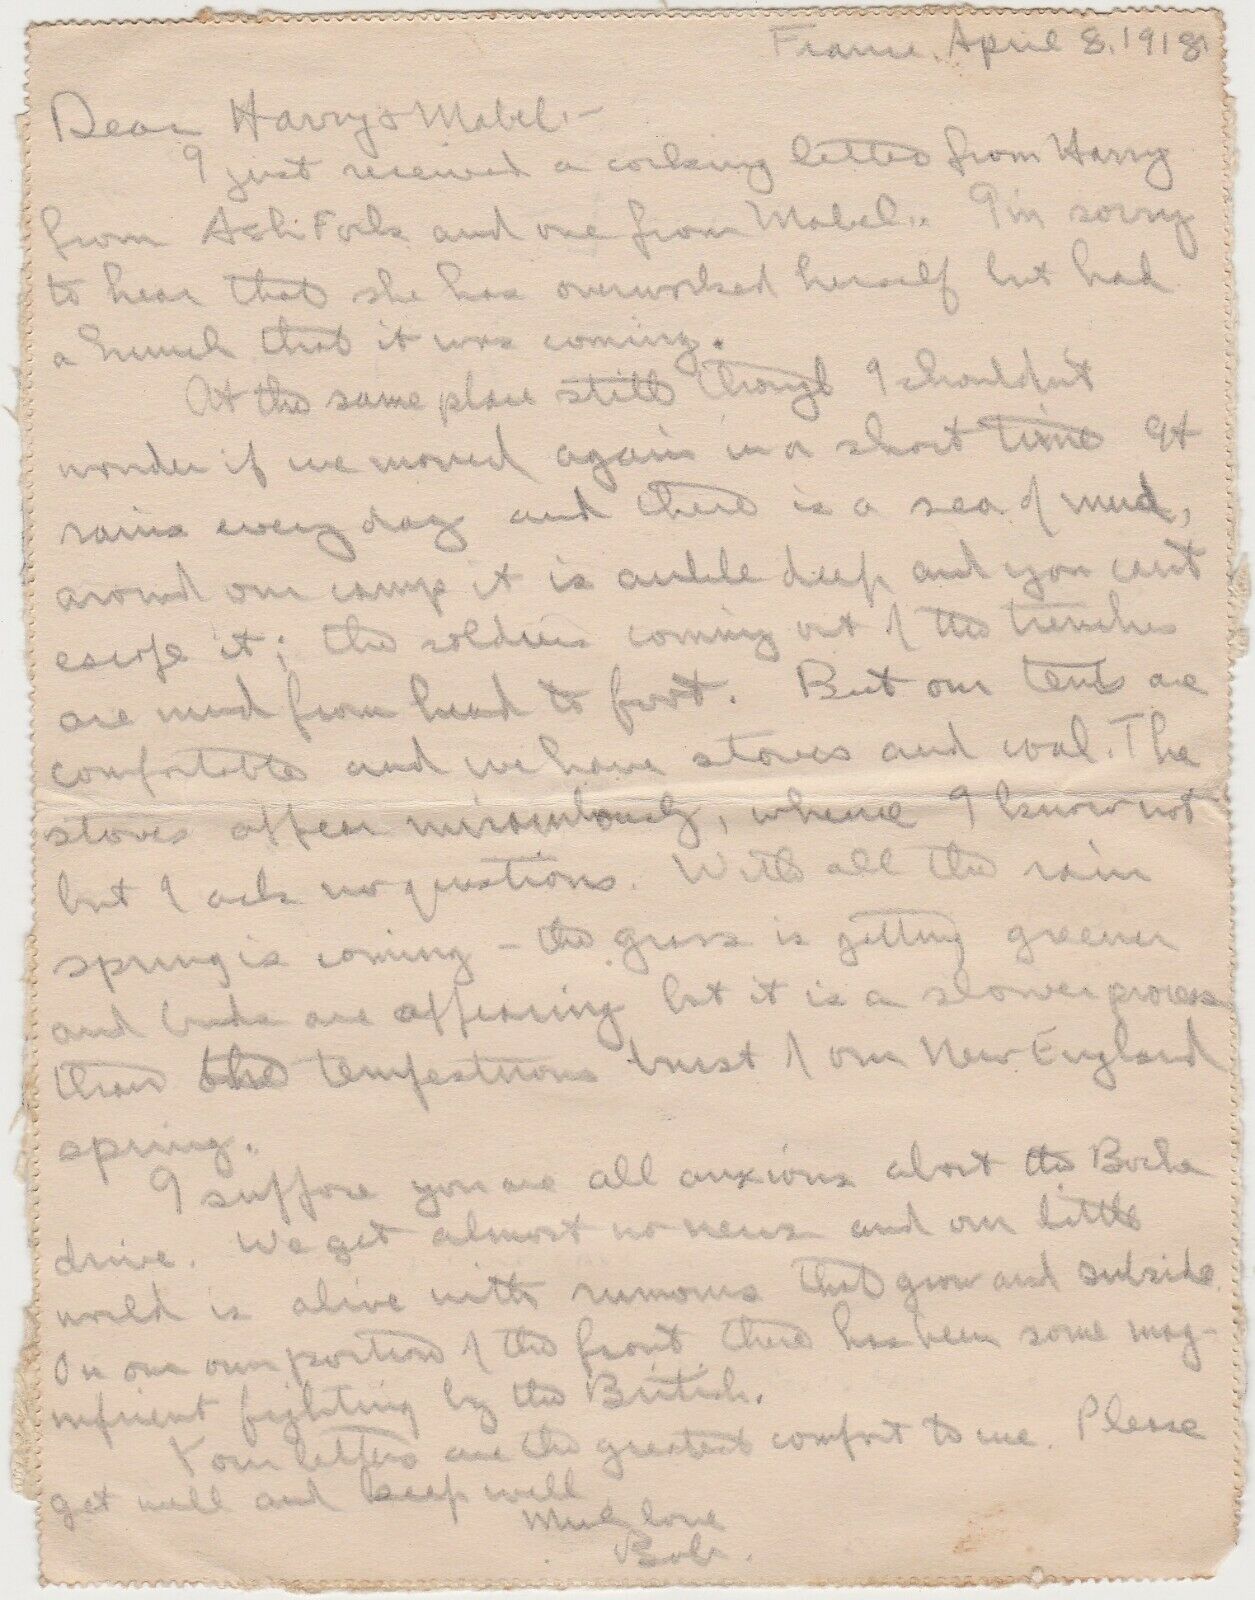 France, April 8, 1918.
Dear Harry & Mabel:-
I just received a corking letter from Harry
from Ash Fork and one from Mabel. I'm sorry
to hear that she has overworked herself but had
a hunch that it was coming.
At the same place still though I shouldn't
wonder if we moved again in a short time It
rains every day and there is a sea of mud,
around our camp it is ankle deep and you can't
escape it; the soldiers coming out of the trenches
are mud from head to foot. But our tents are
comfortable and we have stoves and coal. The
stoves appear miraculously, whence I know not
but I ask no questions. With all the rain
spring is coming - the grass is getting greener
and buds are appearing but it is a slower process
than the tempestuous burst of our New England
spring.
I suppose you are all anxious about the Boche
drive. We get almost no news and our little
world is alive with rumors that grow and subside.
On our own portion of the front there has been some mag-
nificent fighting by the British.
Your letters are the greatest comfort to me. Please
get well and keep well
Much love
Bob.